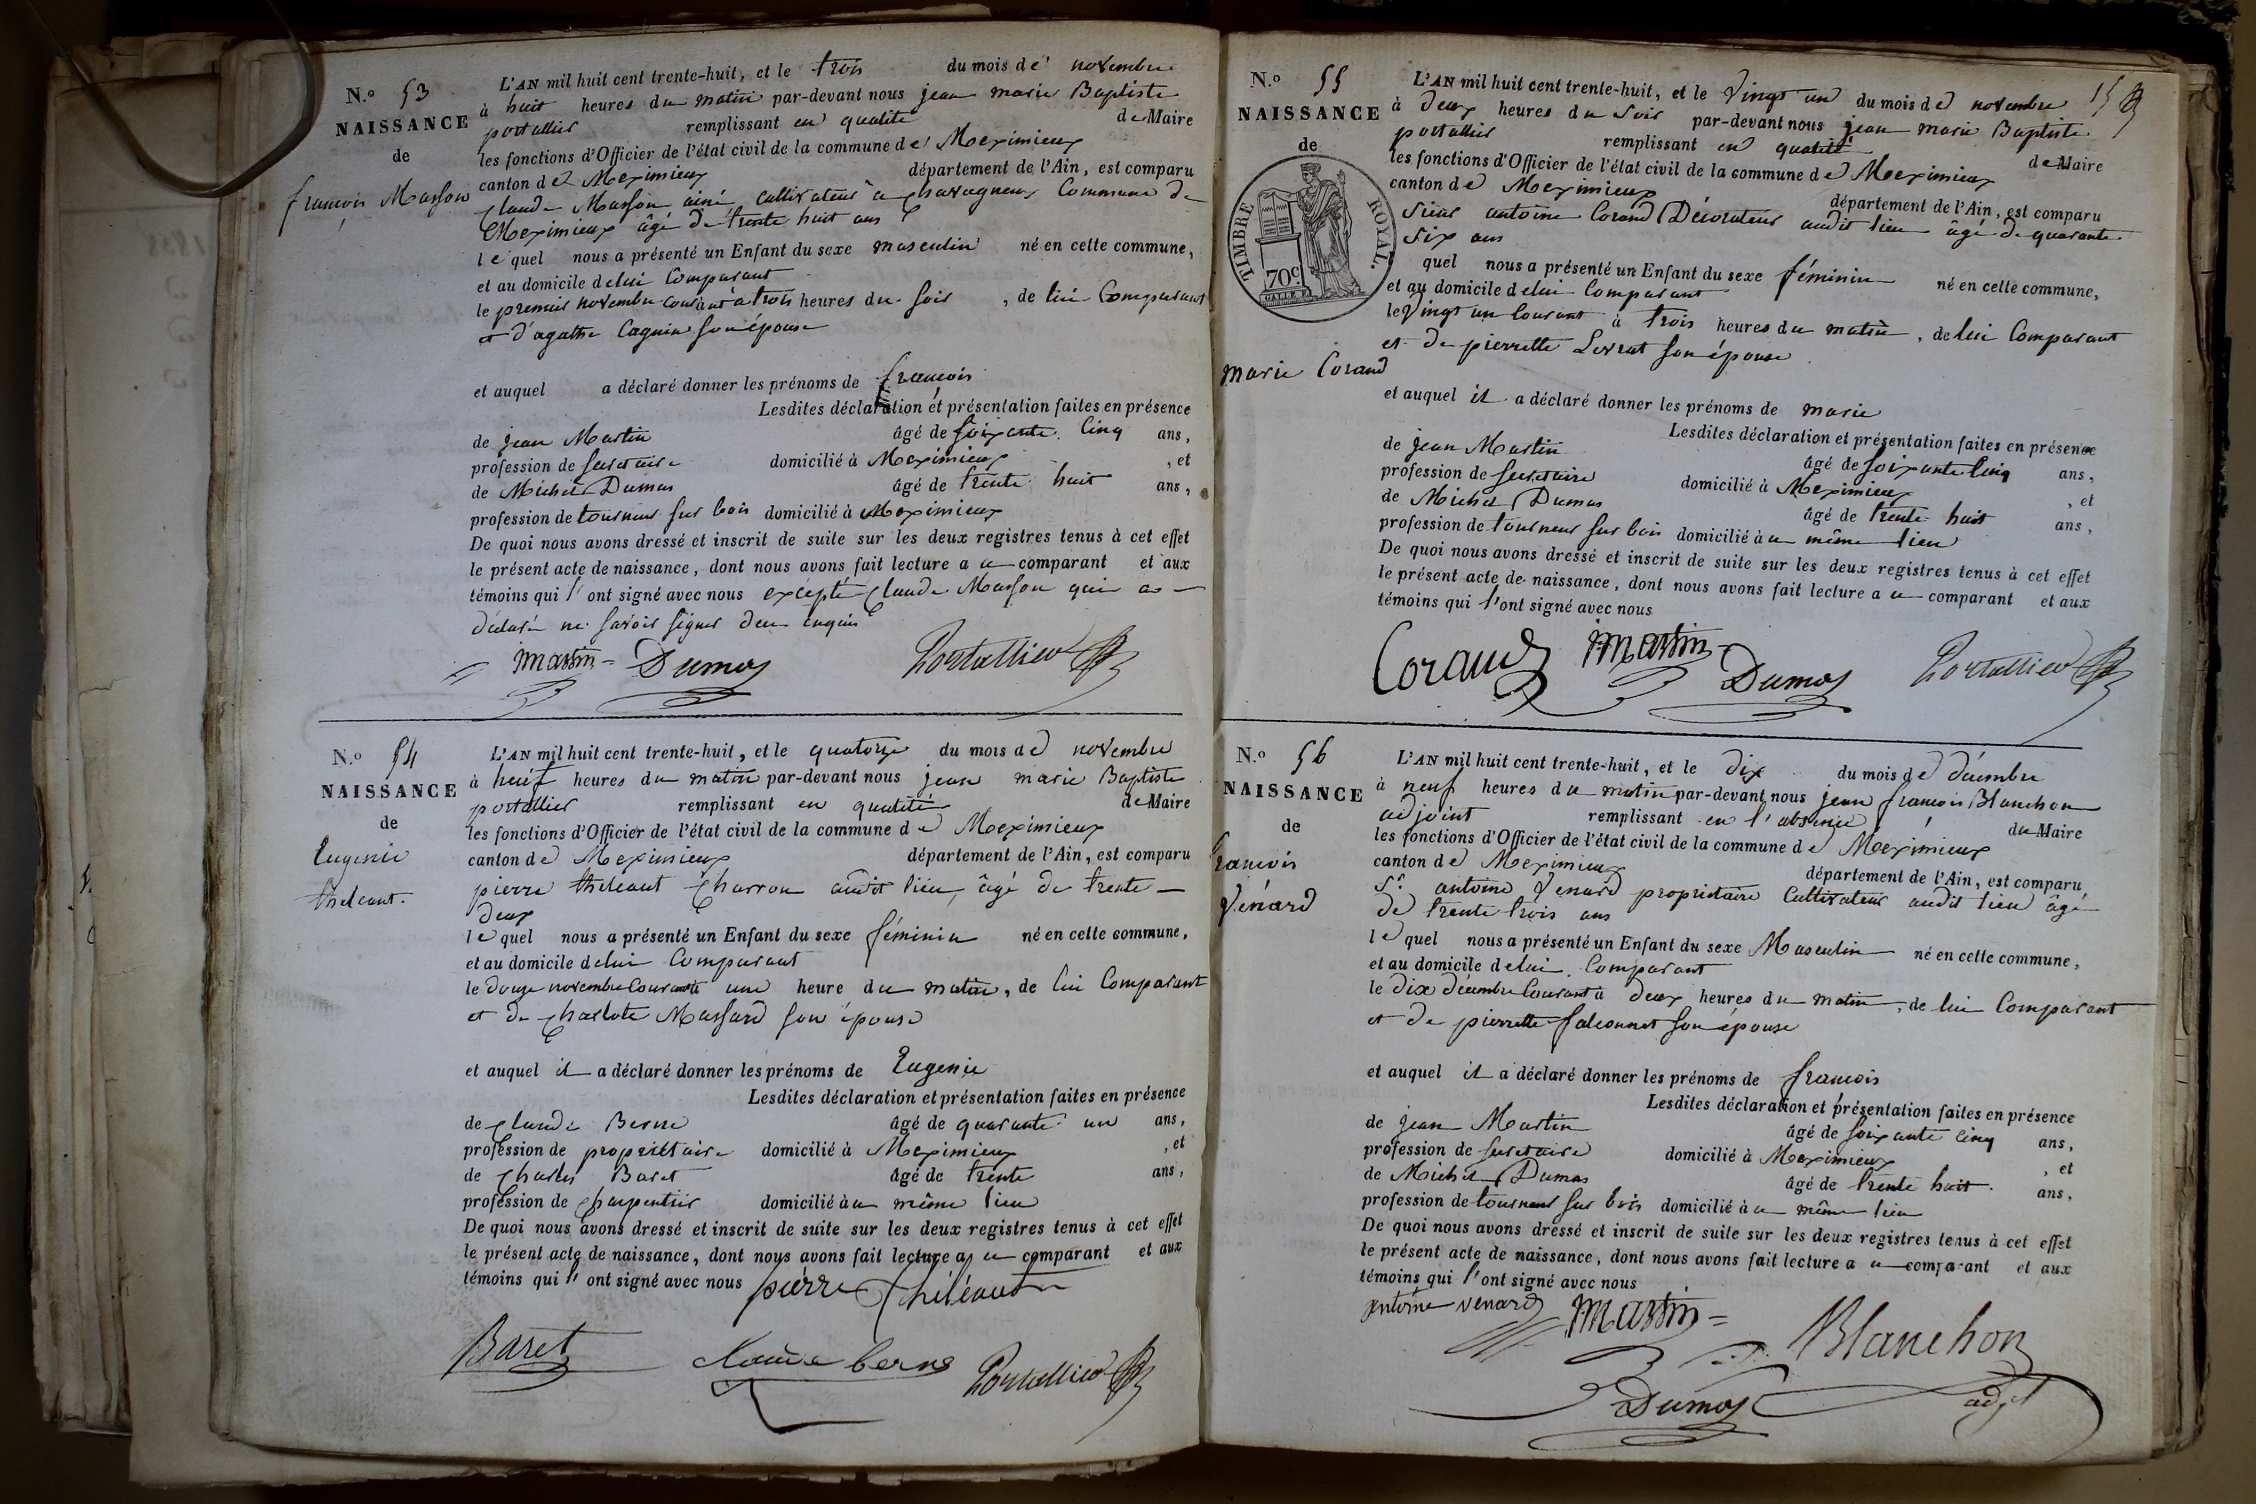 N.º 53
NAISSANCE
de
françois Masson
L'AN mil huit cent trente-huit, et le trois du mois de novembre
à huit heures du matin par-devant nous jean marie Baptiste
portallier remplissant en qualité de Maire
les fonctions d'Officier de l'état civil de la commune de Meximieux
canton de Meximieux département de l'Ain, est comparu
Claude Masson ainé, cultivateur à Chavagneux Commune de
Meximieux âgé de trente huit ans
lequel nous a présenté un Enfant du sexe masculin né en cette commune,
et au domicile de lui Comparant
le premier novembre courant à trois heures du soir, de lui Comparant
et d'agathe Caguin son épouse
et auquel a déclaré donner les prénoms de françois
Lesdites déclaration et présentation faites en présence
de jean Martin âgé de soixante cinq ans,
profession de secretaire domicilié à Meximieux, et
de Michel Dumas âgé de trente huit ans,
profession de tourneur sur bois domicilié à Meximieux
De quoi nous avons dressé et inscrit de suite sur les deux registres tenus à cet effet
le présent acte de naissance, dont nous avons fait lecture a u comparant et aux
témoins qui l'ont signé avec nous excepté Claude Masson qui a
déclaré ne savoir signer de ce enquis
Martin Dumas Portallier
N.º 54
NAISSANCE
de
Eugenie
theleaut.
L'AN mil huit cent trente-huit, et le quatorze du mois de novembre
à neuf heures du matin par-devant nous jean marie Baptiste
portallier remplissant en qualité de Maire
les fonctions d'Officier de l'état civil de la commune de Meximieux
canton de Meximieux département de l'Ain, est comparu
pierre théleaut Charron audit lieu, âgé de trente
deux
lequel nous a présenté un Enfant du sexe féminin né en cette commune,
et au domicile de lui Comparant
le douze novembre Courant à une heure du matin, de lui Comparant
et de Charlote Massard son épouse
et auquel il a déclaré donner les prénoms de Eugenie
Lesdites déclaration et présentation faites en présence
de Claude Berne âgé de quarante un ans,
profession de propriétaire domicilié à Meximieux, et
de Charles Baret âgé de trente ans,
profession de Charpentier domicilié au même lieu
De quoi nous avons dressé et inscrit de suite sur les deux registres tenus à cet effet
le présent acte de naissance, dont nous avons fait lecture a u comparant et aux
témoins qui l'ont signé avec nous pierre Théléaut
Baret Claude berne Portallier
N.º 55
NAISSANCE
de
TIMBRE ROYAL.
70c.
marie Corand
L'AN mil huit cent trente-huit, et le Vingt un du mois de novembre
à deux heures du soir par-devant nous jean marie Baptiste
portallier remplissant en qualité de Maire
les fonctions d'Officier de l'état civil de la commune de Meximieux
canton de Meximieux département de l'Ain, est comparu
sieur antoine Corand Décorateur audit lieu âgé de quarante
six ans
quel nous a présenté un Enfant du sexe féminin né en cette commune,
et au domicile de lui Comparant
le Vingt un Courant à trois heures du matin, de lui Comparant
et de pierrette Levrat son épouse
et auquel il a déclaré donner les prénoms de marie
Lesdites déclaration et présentation faites en présence
de jean Martin âgé de soixante cinq ans,
profession de secretaire domicilié à Meximieux, et
de Michel Dumas âgé de trente huit ans,
profession de tourneur sur bois domicilié au même lieu
De quoi nous avons dressé et inscrit de suite sur les deux registres tenus à cet effet
le présent acte de naissance, dont nous avons fait lecture a u comparant et aux
témoins qui l'ont signé avec nous
Corand Martin Dumas Portallier
N.º 56
NAISSANCE
de
françois
Vénard
L'AN mil huit cent trente-huit, et le dix du mois de décembre
à neuf heures du matin par-devant nous jean françois Blanchon
adjoint remplissant en l'absence du Maire
les fonctions d'Officier de l'état civil de la commune de Meximieux
canton de Meximieux département de l'Ain, est comparu
Sr. antoine Venard propriétaire Cultivateur audit lieu âgé
de trente trois ans
lequel nous a présenté un Enfant du sexe Masculin né en cette commune,
et au domicile de lui Comparant
le dix décembre Courant à deux heures du matin, de lui Comparant
et de pierrette falconnet son épouse
et auquel il a déclaré donner les prénoms de françois
Lesdites déclaration et présentation faites en présence
de jean Martin âgé de soixante cinq ans,
profession de secretaire domicilié à Meximieux, et
de Michel Dumas âgé de trente huit ans,
profession de tourneur sur bois domicilié au même lieu
De quoi nous avons dressé et inscrit de suite sur les deux registres tenus à cet effet
le présent acte de naissance, dont nous avons fait lecture a u comparant et aux
témoins qui l'ont signé avec nous
antoine venard Martin Blanchon
Dumas adjt